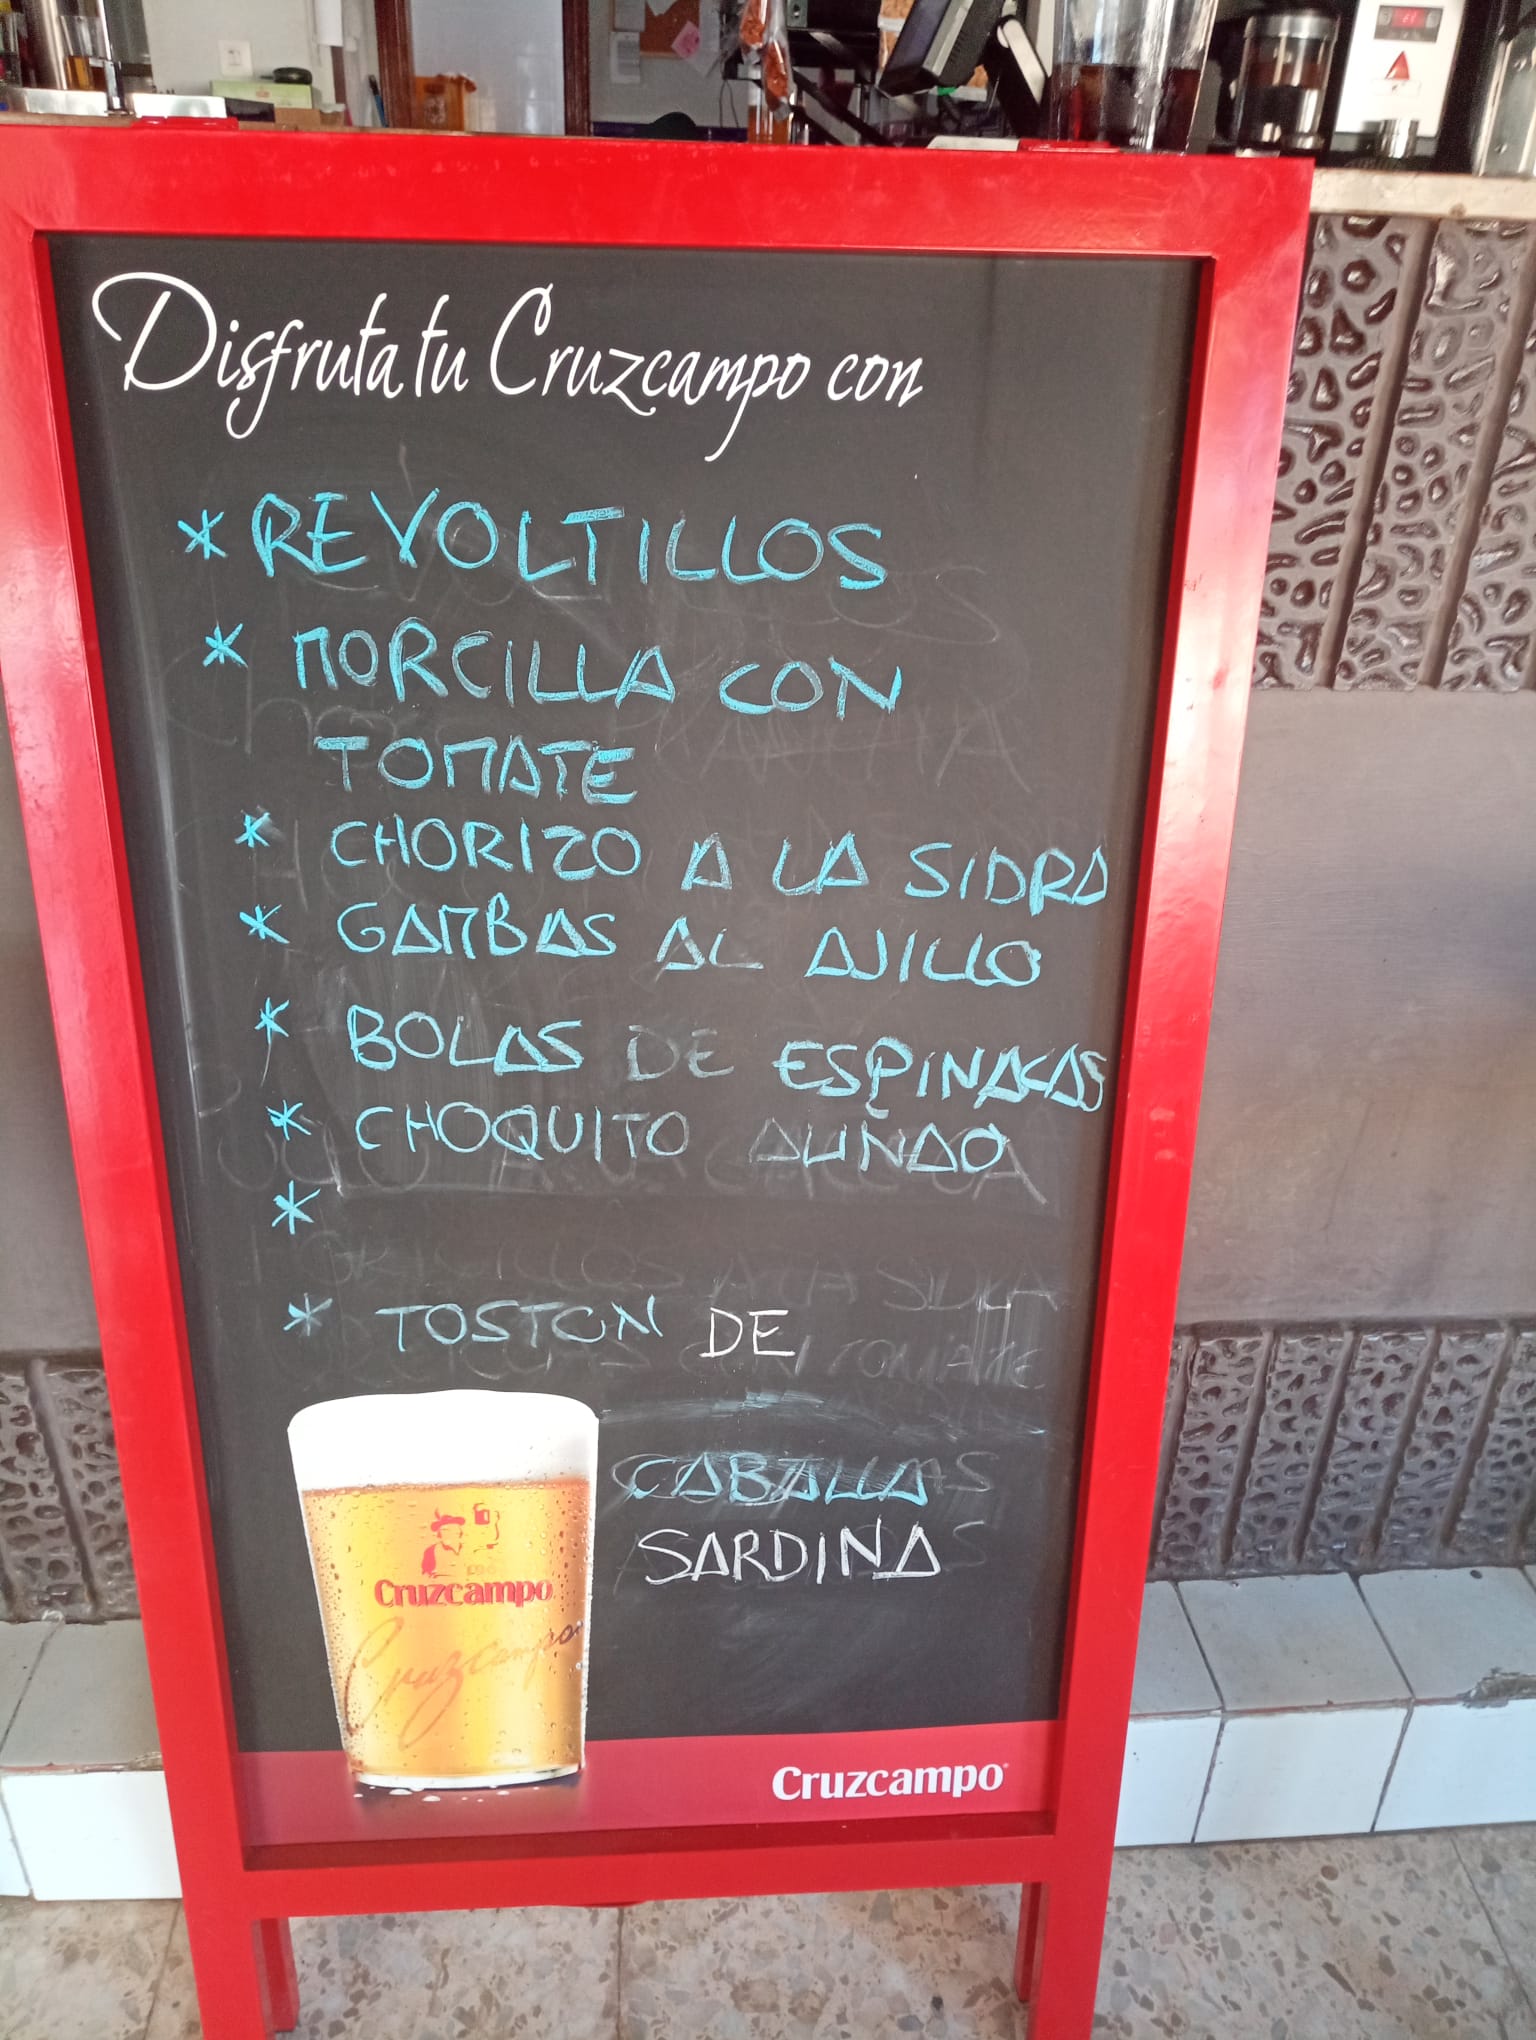 Disfruta tu Cruzcampo con
* REVOLTILLOS
* MORCILLA CON
TOMATE
* CHORIZO A LA SIDRA
* GAMBAS AL AJILLO
* BOLAS DE ESPINACAS
* CHOQUITO ALIÑAO
*
* TOSTON DE
CABALLA
SARDINA
Cruzcampo
Cruzcampo
Cruzcampo